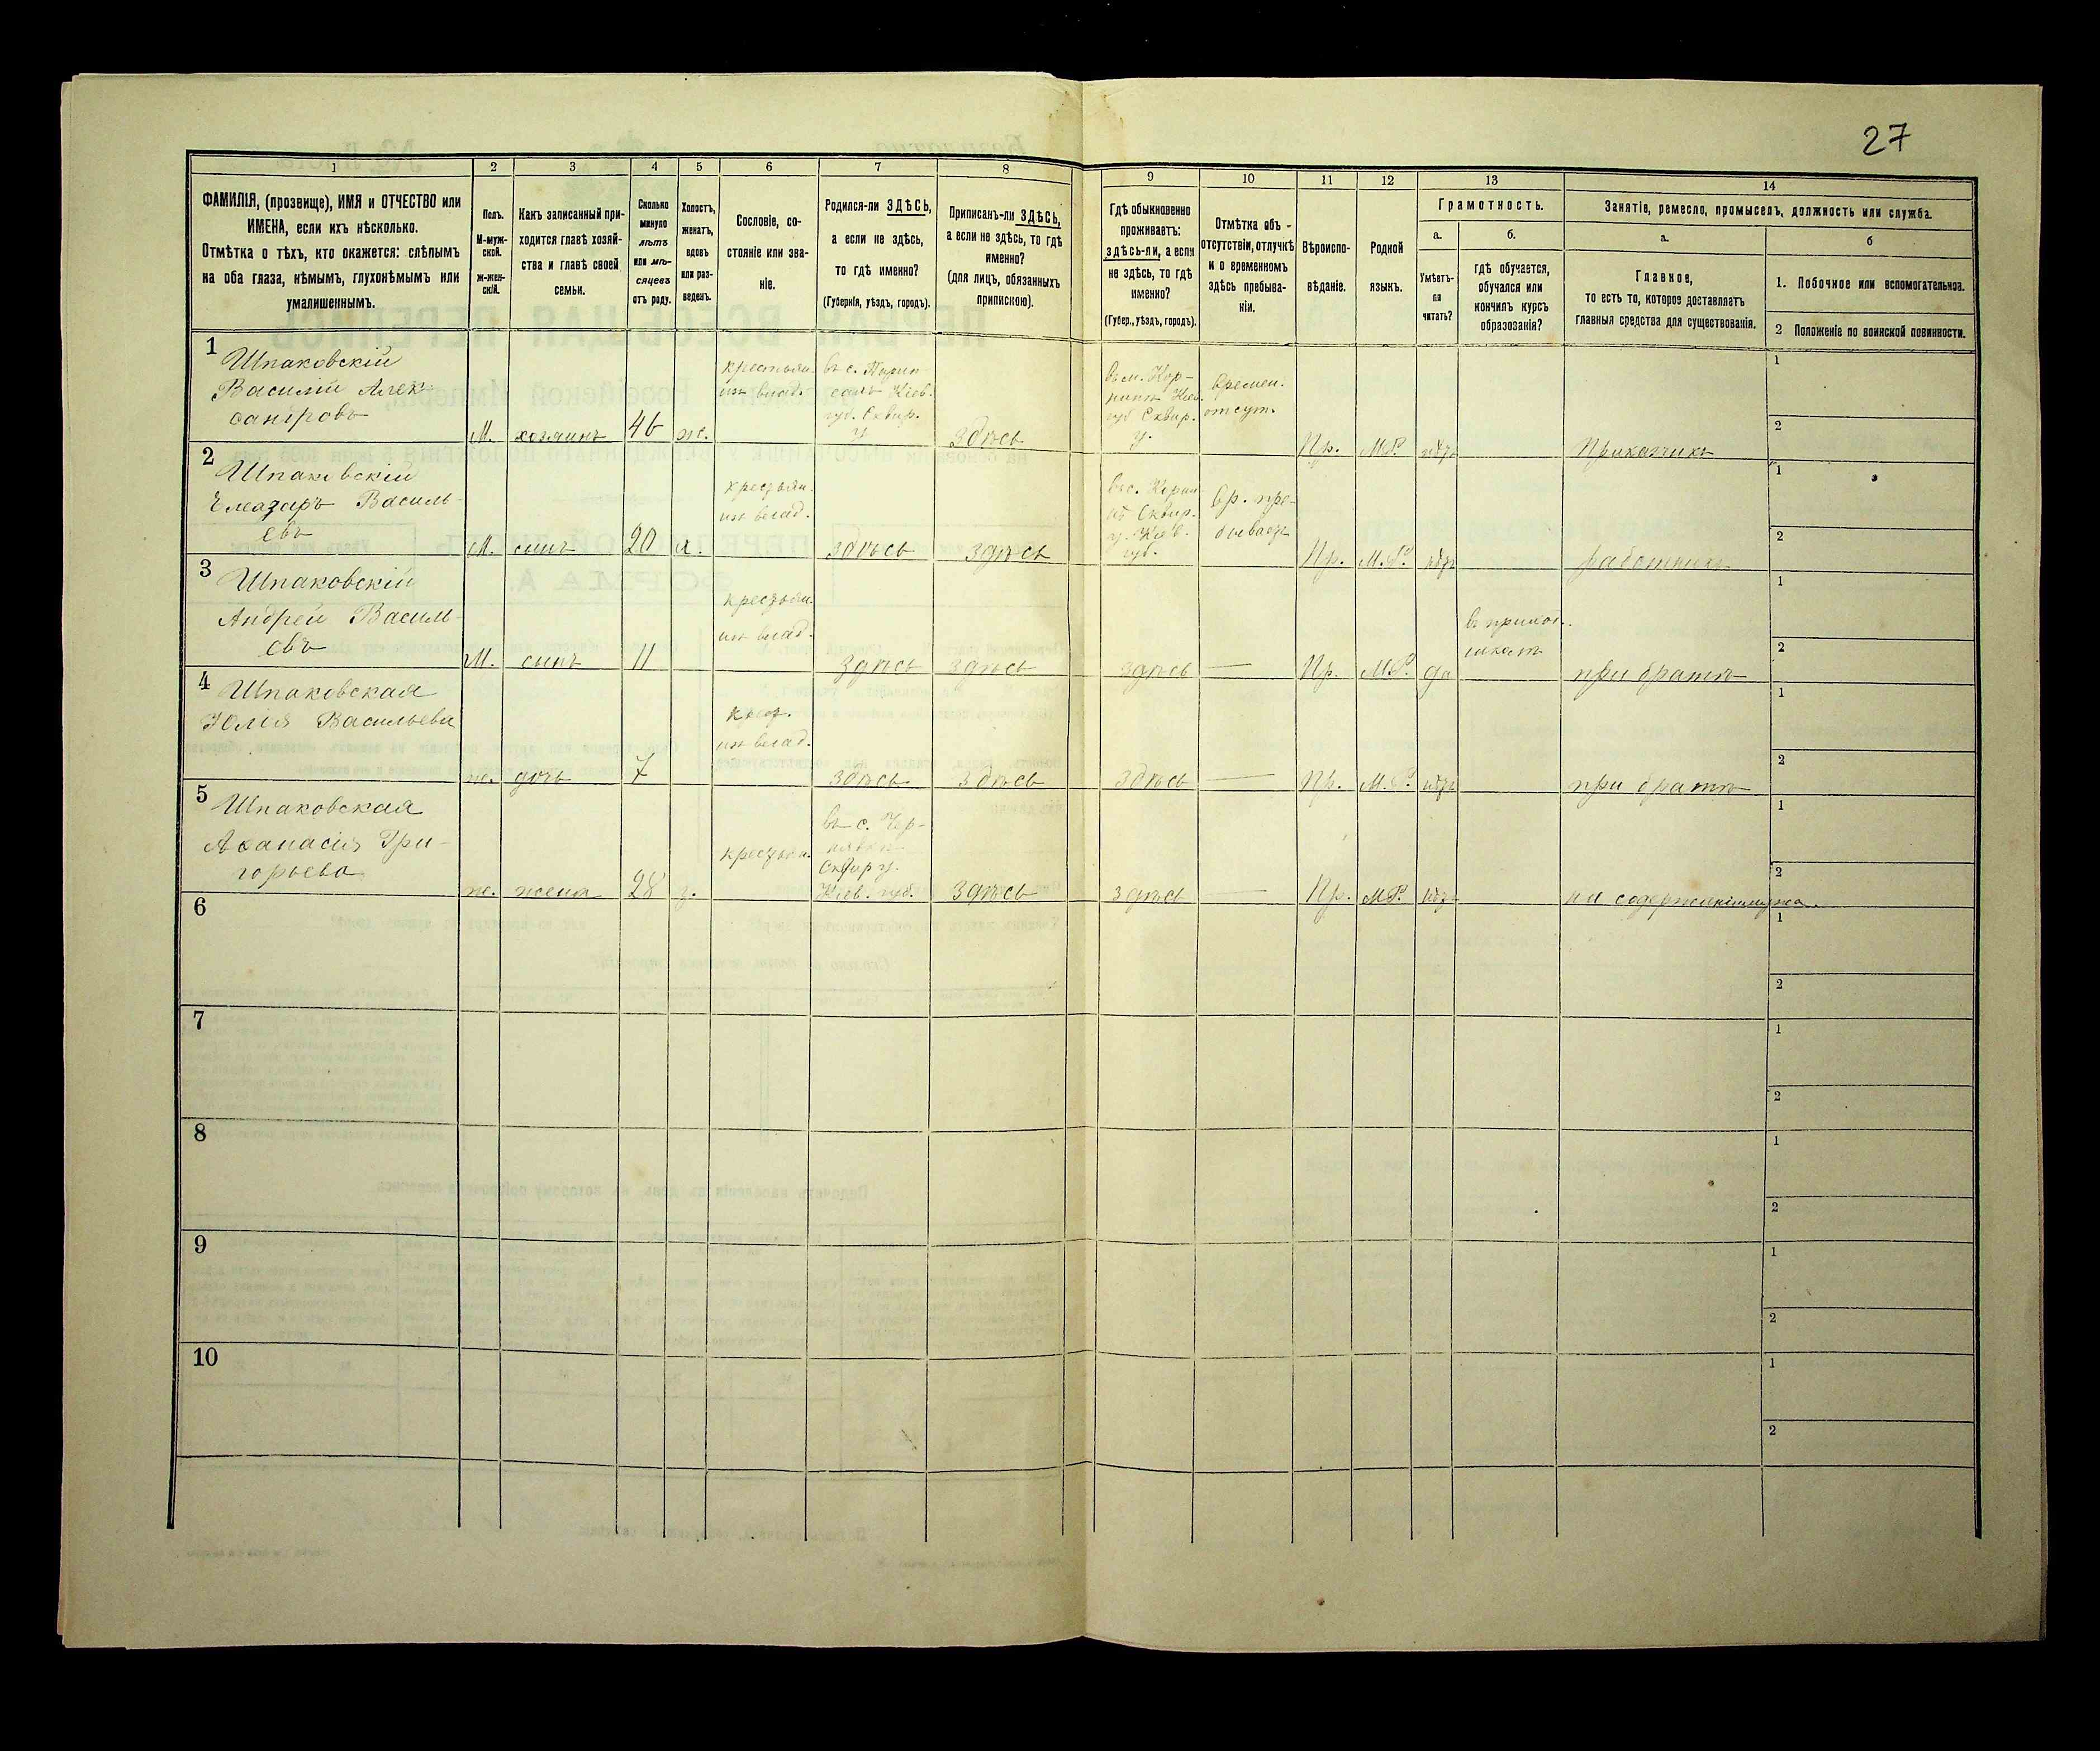 27
1 2 3 4 5 6 7 8 9 10 11 12 13 14
ФАМИЛІЯ, (прозвище), ИМЯ и ОТЧЕСТВО или
ИМЕНА, если ихъ нѣсколько.
Отмѣтка о тѣхъ, кто окажется: слѣпымъ
на оба глаза, нѣмымъ, глухонѣмымъ или
умалишеннымъ.
Полъ.
М-муж-
ской.
Ж-жен-
скій.
Какъ записанный при-
ходится главѣ хозяй-
ства и главѣ своей
семьи.
Сколько
минуло
лѣтъ
или мѣ-
сяцевъ
отъ роду.
Холостъ,
женатъ,
вдовъ
или раз-
веденъ.
Сословіе, со-
стояніе или зва-
ніе.
Родился-ли ЗДѢСЬ,
а если не здѣсь,
то гдѣ именно?
(Губернія, уѣздъ, городъ).
Приписанъ-ли ЗДѢСЬ,
а если не здѣсь, то гдѣ
именно?
(для лицъ, обязанныхъ
припискою).
Гдѣ обыкновенно
проживаетъ:
здѣсь-ли, а если
не здѣсь, то гдѣ
именно?
(Губер., уѣздъ, городъ).
Отмѣтка объ -
отсутствіи, отлучкѣ
и о временномъ
здѣсь пребыва-
ніи.
Вѣроиспо-
вѣданіе.
Родной
языкъ.
Грамотность.
а.
Умѣетъ-
ли
читать?
б.
гдѣ обучается,
обучался или
кончилъ курсъ
образованія?
Занятіе, ремесло, промыселъ, должность или служба.
а.
Главное,
то есть то, которое доставляетъ
главныя средства для существованія.
б
1. Побочное или вспомогательное.
2 Положеніе по воинской повинности.
1
Шпаковскій
Василій Алек-
сандровъ
М.
хозяинъ
46
ж.
крестьян.
изъ влад.
въ с.
Кіев.
губ. Сквир.
у.
здѣсь
въ м. Кор-
нинѣ Кіев.
губ Сквир.
у.
Времен.
отсут.
Пр.
М.Р.
нѣтъ
Приказчикъ
1
2
2
Шпаковскій
Елеазаръ Василь-
евъ
М.
сынъ
20
х.
крестьян.
изъ влад.
здѣсь
здѣсь
въ с. Корни-
нѣ Сквир.
у. Кіев.
губ.
Вр. пре-
бываетъ
Пр.
М.Р.
нѣтъ
работникъ
1
2
3
Шпаковскій
Андрей Василь-
евъ
М.
сынъ
11
крестьян.
изъ влад.
здѣсь
здѣсь
здѣсь
—
Пр.
М.Р.
да
въ приход.
школѣ
при братѣ
1
2
4
Шпаковская
Юлія Васильева
ж.
дочь
7
крест.
изъ влад.
здѣсь
здѣсь
здѣсь
—
Пр.
М.Р.
нѣтъ
при братѣ
1
2
5
Шпаковская
Аѳанасія Гри-
горьева
ж.
жена
28
з.
крестьян.
въ с. Чер-
Сквир у.
Кіев. губ.
здѣсь
здѣсь
—
Пр.
М.Р.
нѣтъ
на содержаніи мужа.
1
2
6
1
2
7
1
2
8
1
2
9
1
2
10
1
2